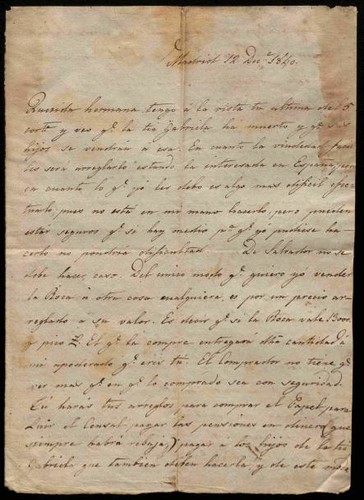 Madrid 12 Dic.e 1840.
Querida hermana tengo á la vista tu última del 5
cort.e y veo q.e la tia Gabriela ha muerto y q.e sus
hijos se vendrán á esa. En cuanto la
les será arreglarlo estando la interesada en España, pero
en cuanto lo q.e yó les debo es algo mas dificil efec
tuarlo, pues no está en mi mano hacerlo, pero pueden
estar seguros q.e si hay medio p.a q.e yo pudiese ha-
cerlo no pondria dificultad. De Salvador no se
debe hacer caso. Del unico modo q.e quiero yo vender
la Roca ú otra cosa cualquiera es por un precio ar-
reglado á su valor. Es decir q.e si la Roca vale
y pico £. El q.e la compre entregara dha cantidad á
mi apoderado q.e eres tu. El Comprador no tiene q.e
ver mas q.e en q.e lo comprado sea con seguridad.
Tú harás tus arreglos para comprar el Papel para
Luis el Censal, pagar las pensiones en dinero (que
siempre habrá rebaja), pagar a los hijos de la tia
Gabriela que tambien deben hacerla y de este modo